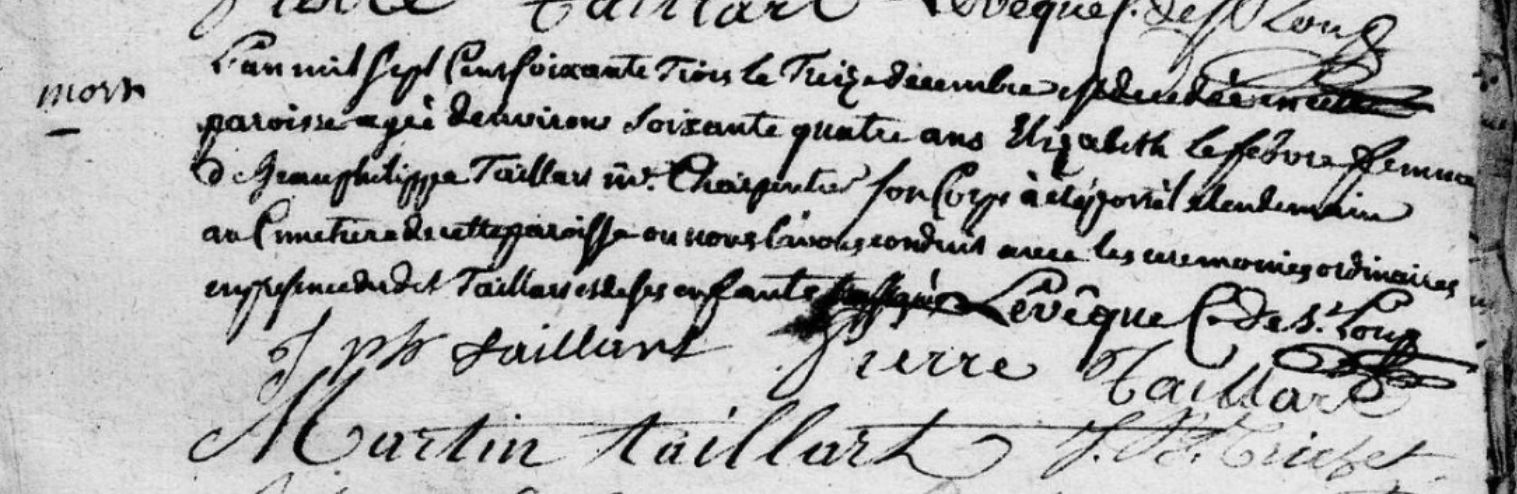 Pierre Taillart Levêque C. de St Loup
mort
L'an mil sept cent soixante trois le treize decembre est decedée en cette
paroisse agée denviron soixante quatre ans Elizabeth Lefebvre femme
de Jean philippe Taillart mtre. Charpentier son Corps à eté porté le lendemain
au Cimetiere de cette paroisse ou nous l'avons conduit avec les ceremonies ordinaires
en presence dudit Taillart et de ses enfants Levêque C. de St. Loup
J ph taillart Pierre Taillart
Martin taillart